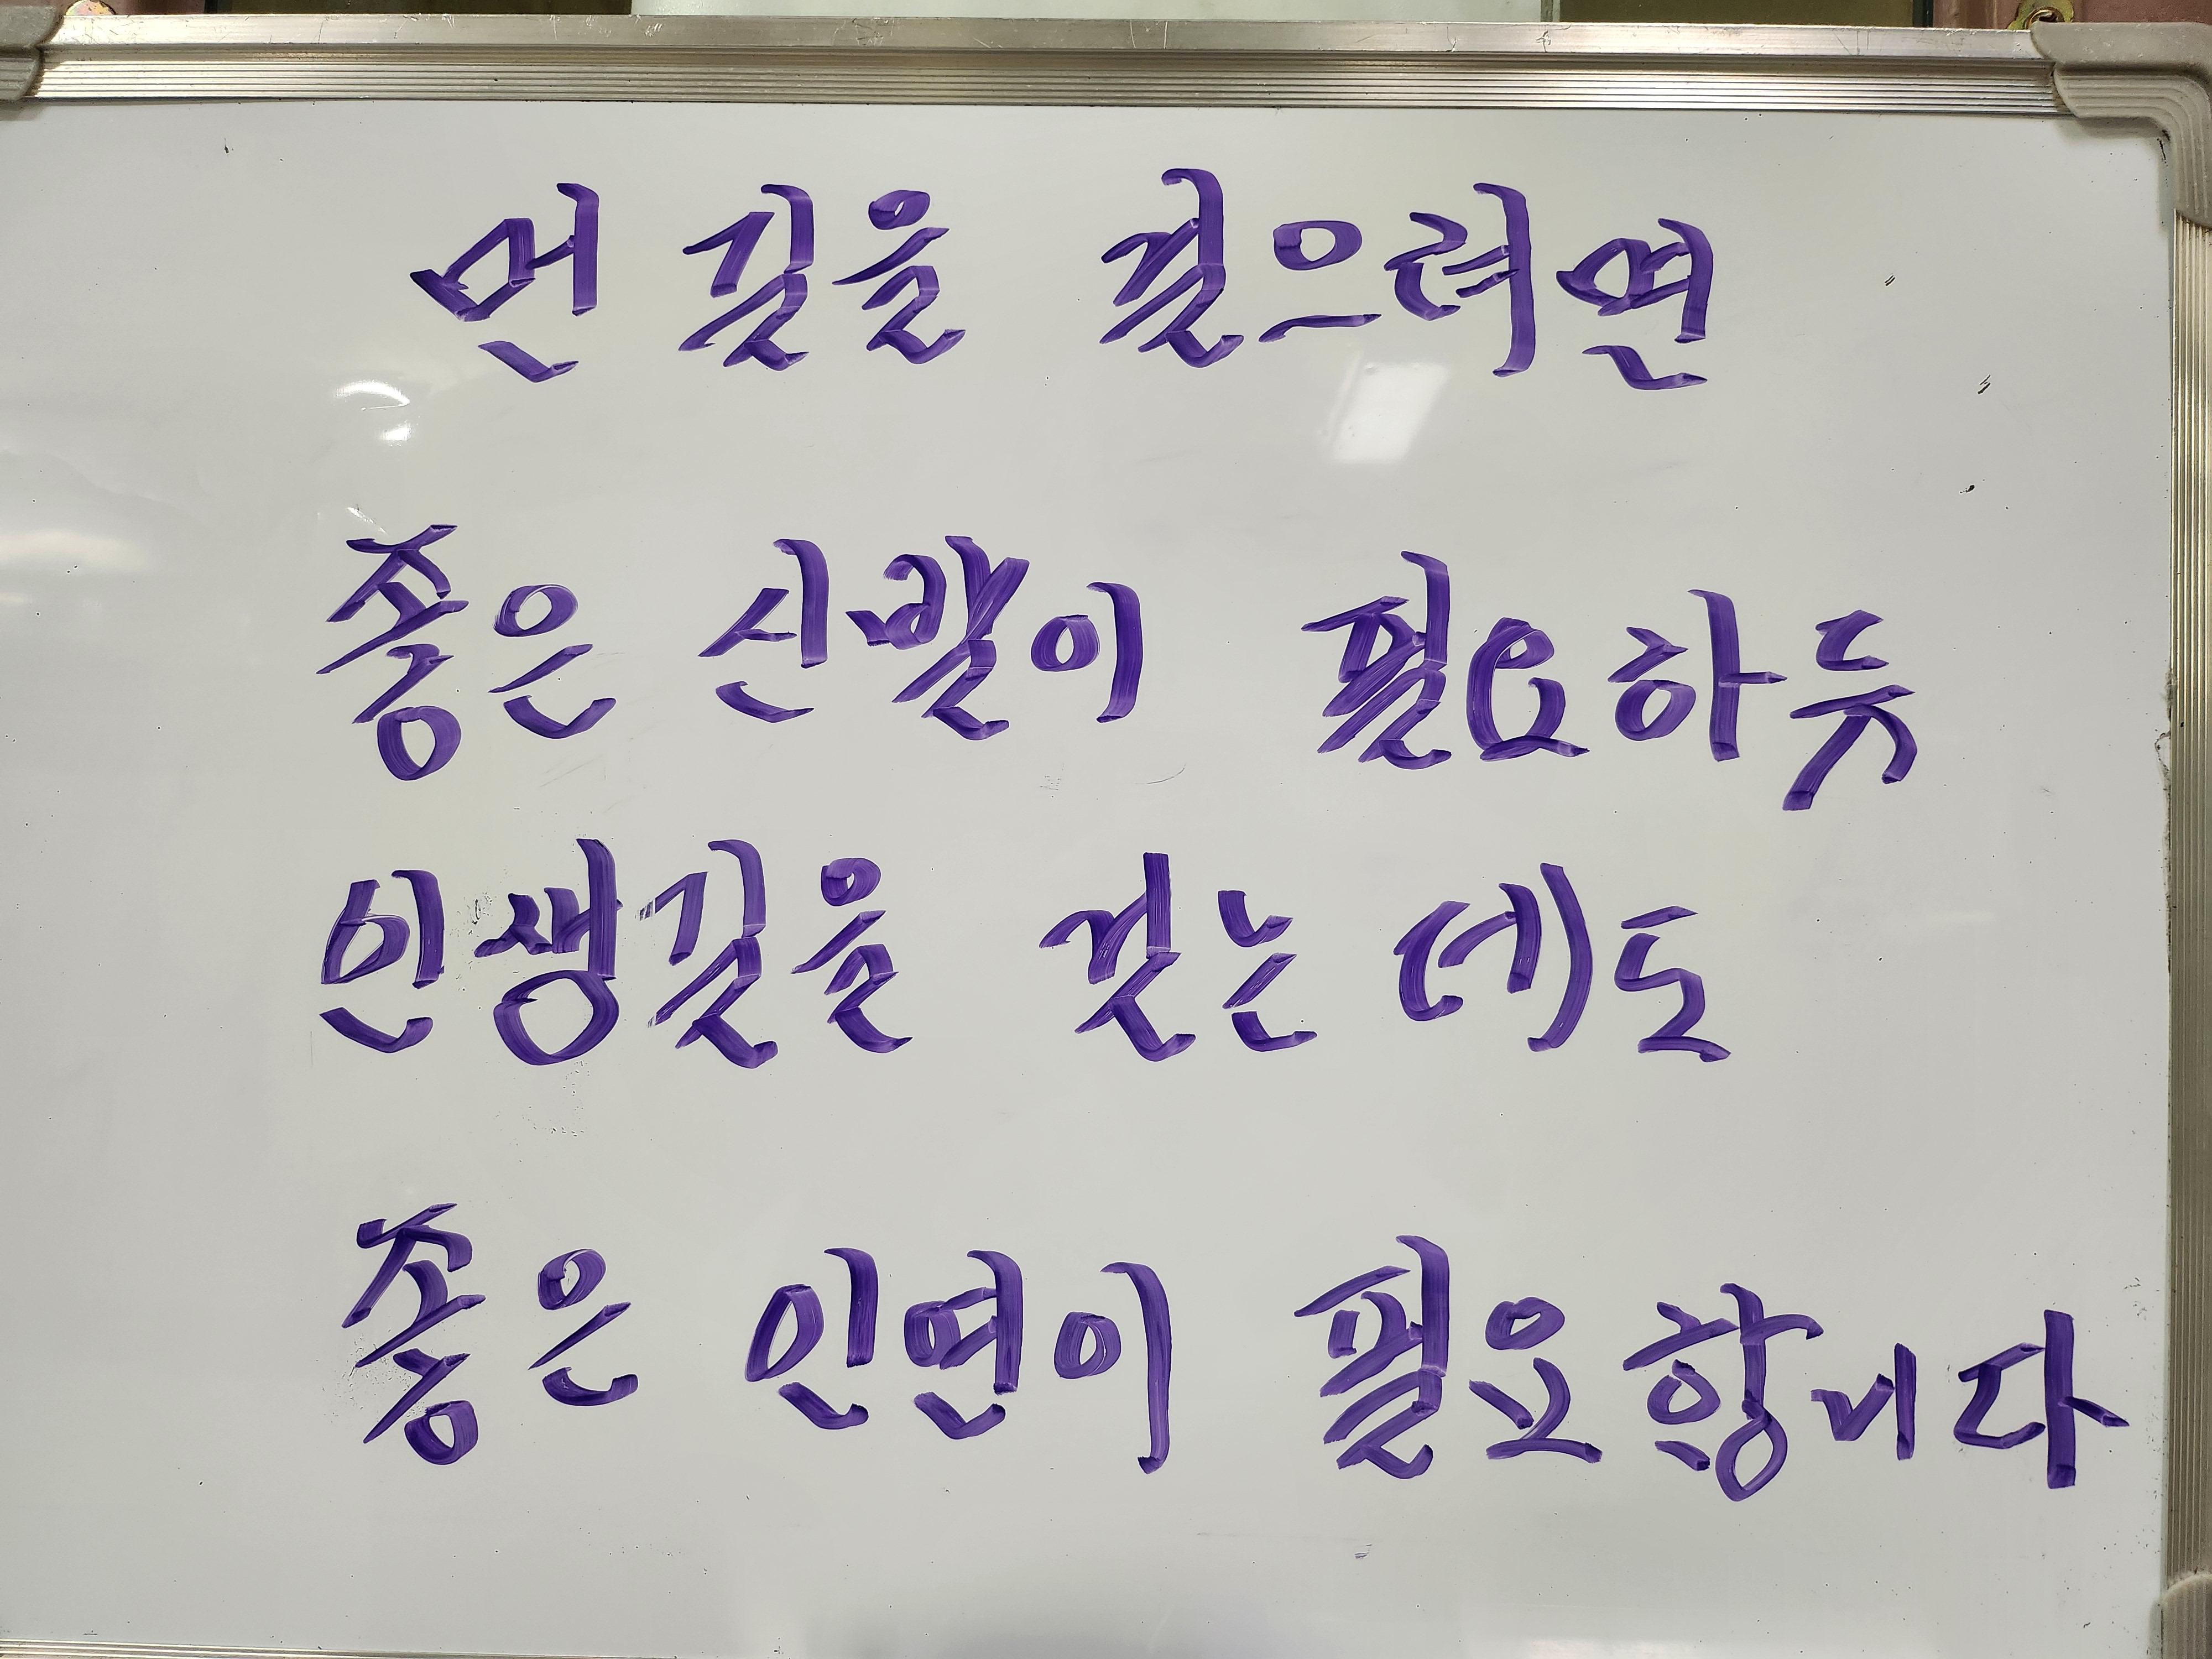 먼 길을 걸으려면
좋은 신발이 필요하듯
인생길을 걷는 데도
좋은 인연이 필요합니다